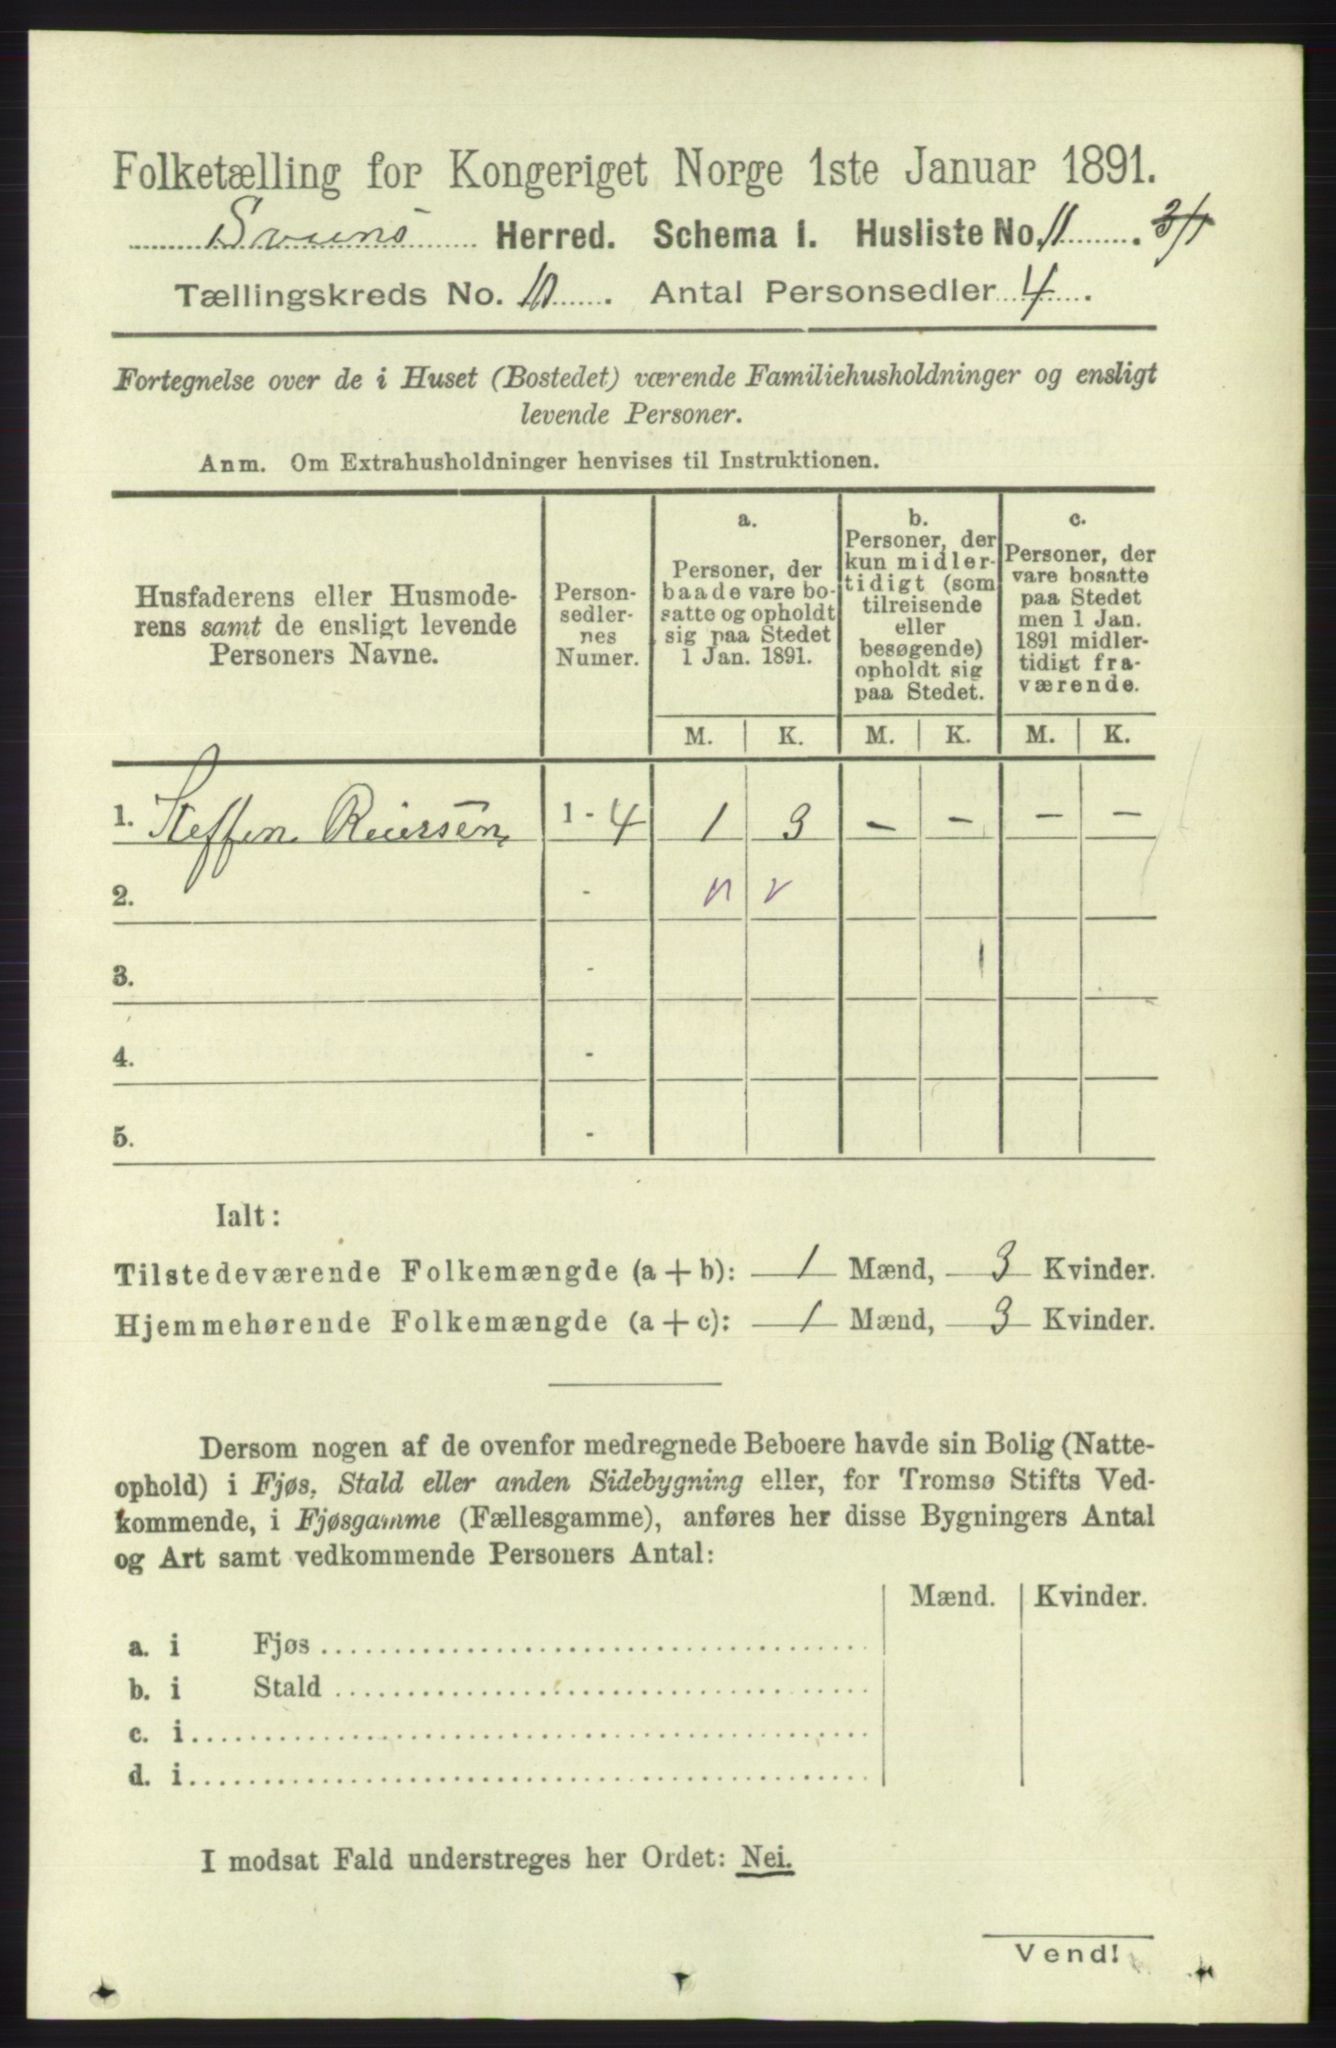 Folketælling for Kongeriget Norge 1ste Januar 1891.
Herred. Schema 1. Husliste No. 11.
Tællingskreds No. 10. Antal Personsedler 4.
Fortegnelse over de i Huset (Bostedet) værende Familiehusholdninger og ensligt
levende Personer.
Anm. Om Extrahusholdninger henvises til Instruktionen.
Husfaderens eller Husmode-
rens samt de ensligt levende
Personers Navne.
Person-
sedler-
nes
Numer.
a.
Personer, der
baade vare bo-
satte og opholdt
sig paa Stedet
1 Jan. 1891.
b.
Personer, der
kun midler-
tidigt (som
tilreisende
eller
besøgende)
opholdt sig
paa Stedet.
c.
Personer, der
vare bosatte
paa Stedet
men 1 Jan.
1891 midler-
tidigt fra-
værende.
M. K. M. K. M. K.
1. Steffen Reiersen, 1 - 4 1 3 - - - -
2. -
3. -
4. -
5. -
Ialt:
Tilstedeværende Folkemængde (a + b): 1 Mænd, 3 Kvinder.
Hjemmehørende Folkemængde (a + c): 1 Mænd, 3 Kvinder.
Dersom nogen af de ovenfor medregnede Beboere havde sin Bolig (Natte-
ophold) i Fjøs, Stald eller anden Sidebygning eller, for Tromsø Stifts Ved-
kommende, i Fjøsgamme (Fællesgamme), anføres her disse Bygningers Antal
og Art samt vedkommende Personers Antal:
Mænd. Kvinder.
a. i Fjøs
b. i Stald
c. i
d. i
I modsat Fald understreges her Ordet: Nei.
Vend!